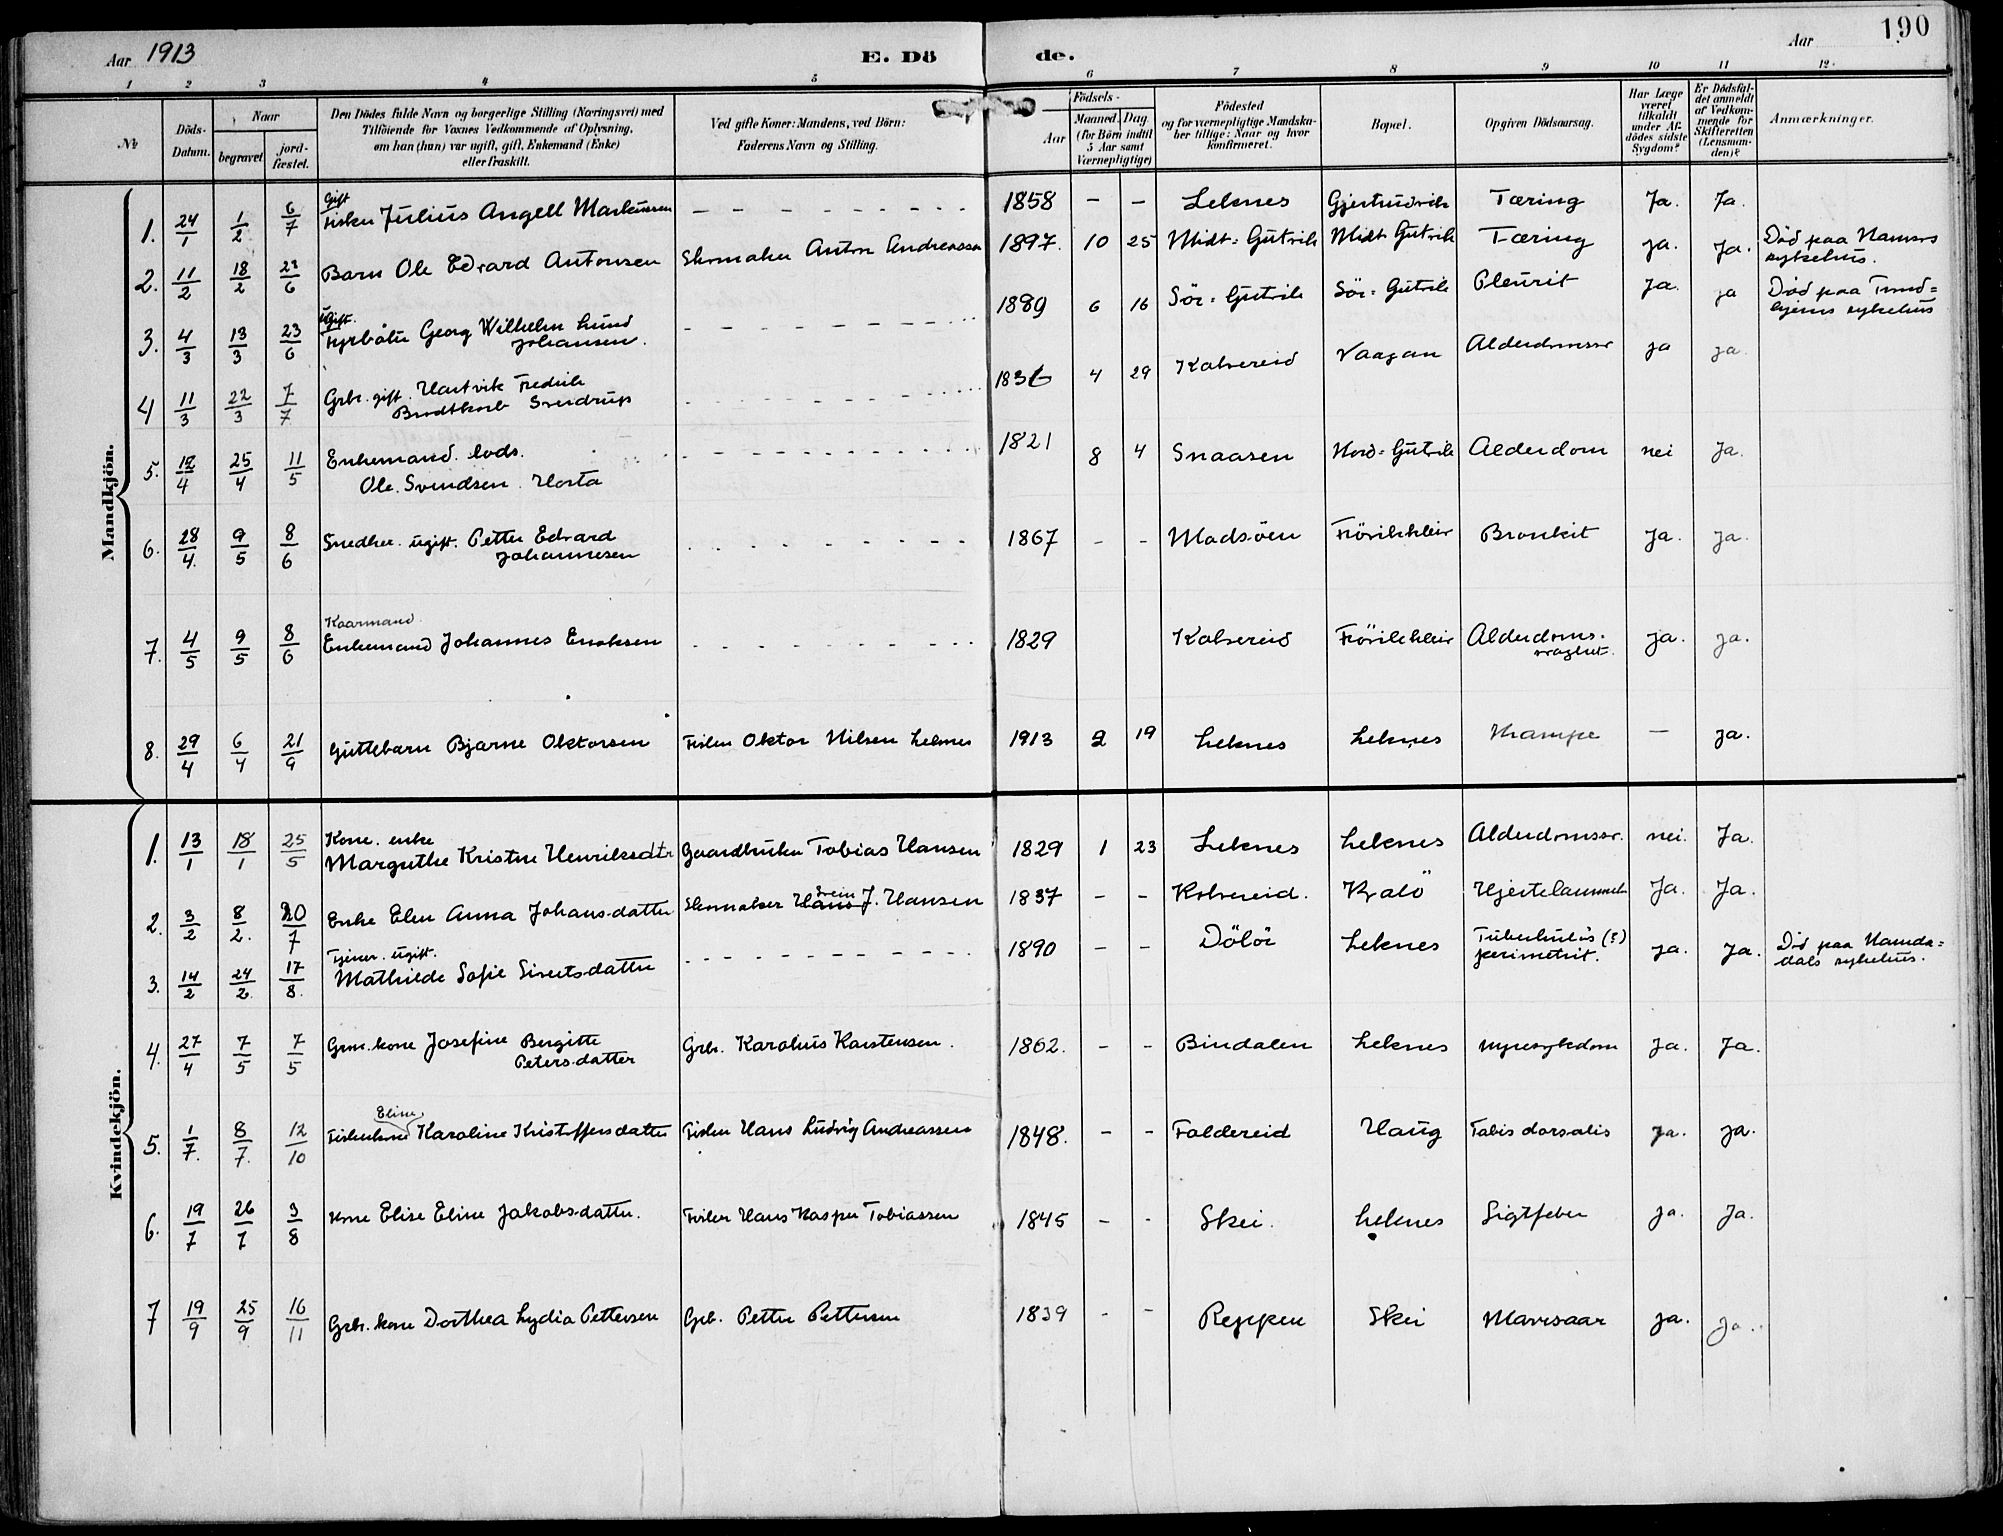 Aar 1913 E. Döde. Aar 190
1 2 3 4 5 6 7 8 9 10 11 12.
№ Döds-Datum. Naar begravet jordfæstet. Den Dödes fulde Navn og borgerlige Stilling (Næringsvei) med Tilföiende for Voxnes Vedkommende af Oplysning, om han (hun) var ugift, gift, Enkemand (Enke) eller fraskilt. Ved gifte Koner: Mandens, ved Börn: Faderens Navn og Stilling. Födsels- Aar Maaned. Dag. (for Börn indtil 5 Aar samt Værnepligtige) Födested og for værnepligtige Mandskaber tillige: Naar og hvor konfirmeret. Bopæl. Opgiven Dödsaarsag. Har Læge været tilkaldt under Afdödes sidste Sygdom? Er Dödsfaldet anmeldt af Vedkommende for Skifteretten (Lensmanden)? Anmærkninger.
Mandkjön.
1. 24/1 1/2 6/7 Gift Fisker Julius Angell Markussen - - - 1858 - - Leknes Gjertrudvik Tæring Ja. Ja.
2. 11/2 18/2 23/6 Barn Ole Edvard Antonsen Skomaker Anton Andreassen 1897. 10 25 Midt-Gutvik Midt Gutvik Tæring Ja. Ja. Död paa Namsos sykehus.
3. 4/3 13/3 23/6 ugift. Fyrböter Georg Wilhelm Lund Johansen. - - - 1889 6 16 Sör-Gutvik Sör-Gutvik Pleurit Ja. Ja Död paa Trondhjems sykehus
4 11/3 22/3 7/7 Grbr. gift. Hartvik Fredrik Brodtkorb Sverdrup - - - 1836 4 29 Kolvereid Vaagan Alderdomssv Ja Ja.
5. 12/4 25/4 11/5 Enkemand. lods. Ole Svendsen Horta - - - 1821 8 4 Snaasen Nord-Gutvik Alderdom nei Ja.
6. 28/4. 9/5 8/6 Snedker. ugift. Petter Edvard Johannesen - - - 1867 - - Madsöen Frövikkleiv Bronkit Ja. Ja.
7. 4/5 9/5 8/6 Kaarmand Enkemand Johannes Enoksen - - - 1829 Kolvereid Frövikkleiv Alderdoms-svaghet. Ja. Ja.
8. 29/4 6/4 21/9 Guttebarn Bjarne Oktorsen Fisker Oktor Nilsen Leknes 1913 2 19 Leknes Leknes Krampe - Ja.
Kvindekjön.
1. 13/1 18/1 25/5 Kone. enke Margrethe Kristine Henriksdtr Gaardbruker Tobias Hansen 1829 1 23 Leknes Leknes Alderdomssv. nei. Ja.
2. 3/2 8/2. 20/7 Enke Elen Anna Johans-datter Skomaker Hans Svein J. Hansen 1837 - - Kolvereid. Kvalö Hjertelammelse Ja. Ja.
3. 14/2 24/2. 17/8. Tjener. ugift. Mathilde Sofie Sivertsdatter - - - 1890 - - Dölör Leknes Tuberkulös (?) perimetrit. Ja. Ja. Död paa Namdals sykehus.
4. 27/4 7/5 7/5 Grm. kone Josefine Bergitte Petersdatter Grbr. Karolius Karstensen. 1862. - - Bindalen Leknes nyresykdom Ja. Ja.
5. 1/7. 8/7. 12/10 Fiskerkone Eline Karoline Kristoffersdatter Fisker Hans Ludvig Andreassen 1848. - - Foldereid Haug Tabis dorsalis Ja. Ja.
6. 19/7 26/7 3/8 Kone Elise Eline Jakobsdatter. Fisker Hans Kasper Tobiassen 1845 - - Skei. Leknes Sigtfeber Ja. Ja.
7 19/9 25/9 16/11 Grbr. kone Dorthea Lydia Pettersen Grb. Petter Pettersen 1839 - - Reppen Skei Mavesaar Ja. Ja.